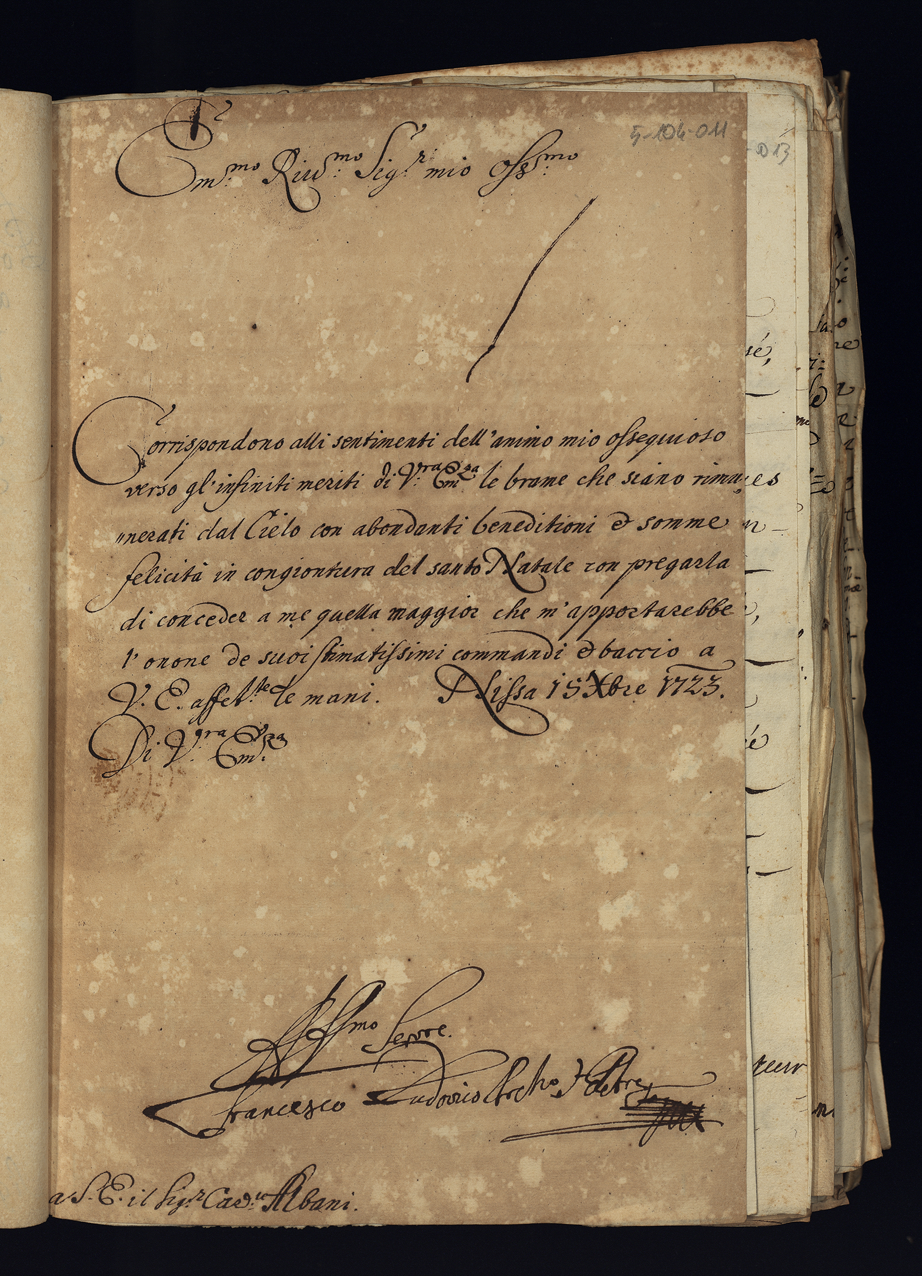 5-104-011
D13
Em.mo Riud.mo Sig.r mio Oss.mo
Corrispondono alli sentimenti dell'animo mio ossequioso
verso gl'infiniti meriti di V.ra Em.za le brame che siano rimu,,
,,nerati dal Cielo con abondanti beneditioni et somme
felicità in congiontura del santo Natale con pregarla
di conceder a me quella maggior che m'apportarebbe
l'onore de suoi stimatissimi commandi et baccio a
V. E. affet.te le mani. Nissa 15 Xbre 1723.
Di V.ra Em.za
Aff.mo Serre.
Francesco Ludovico
a S. E. il Sig.r Card.le Albani.